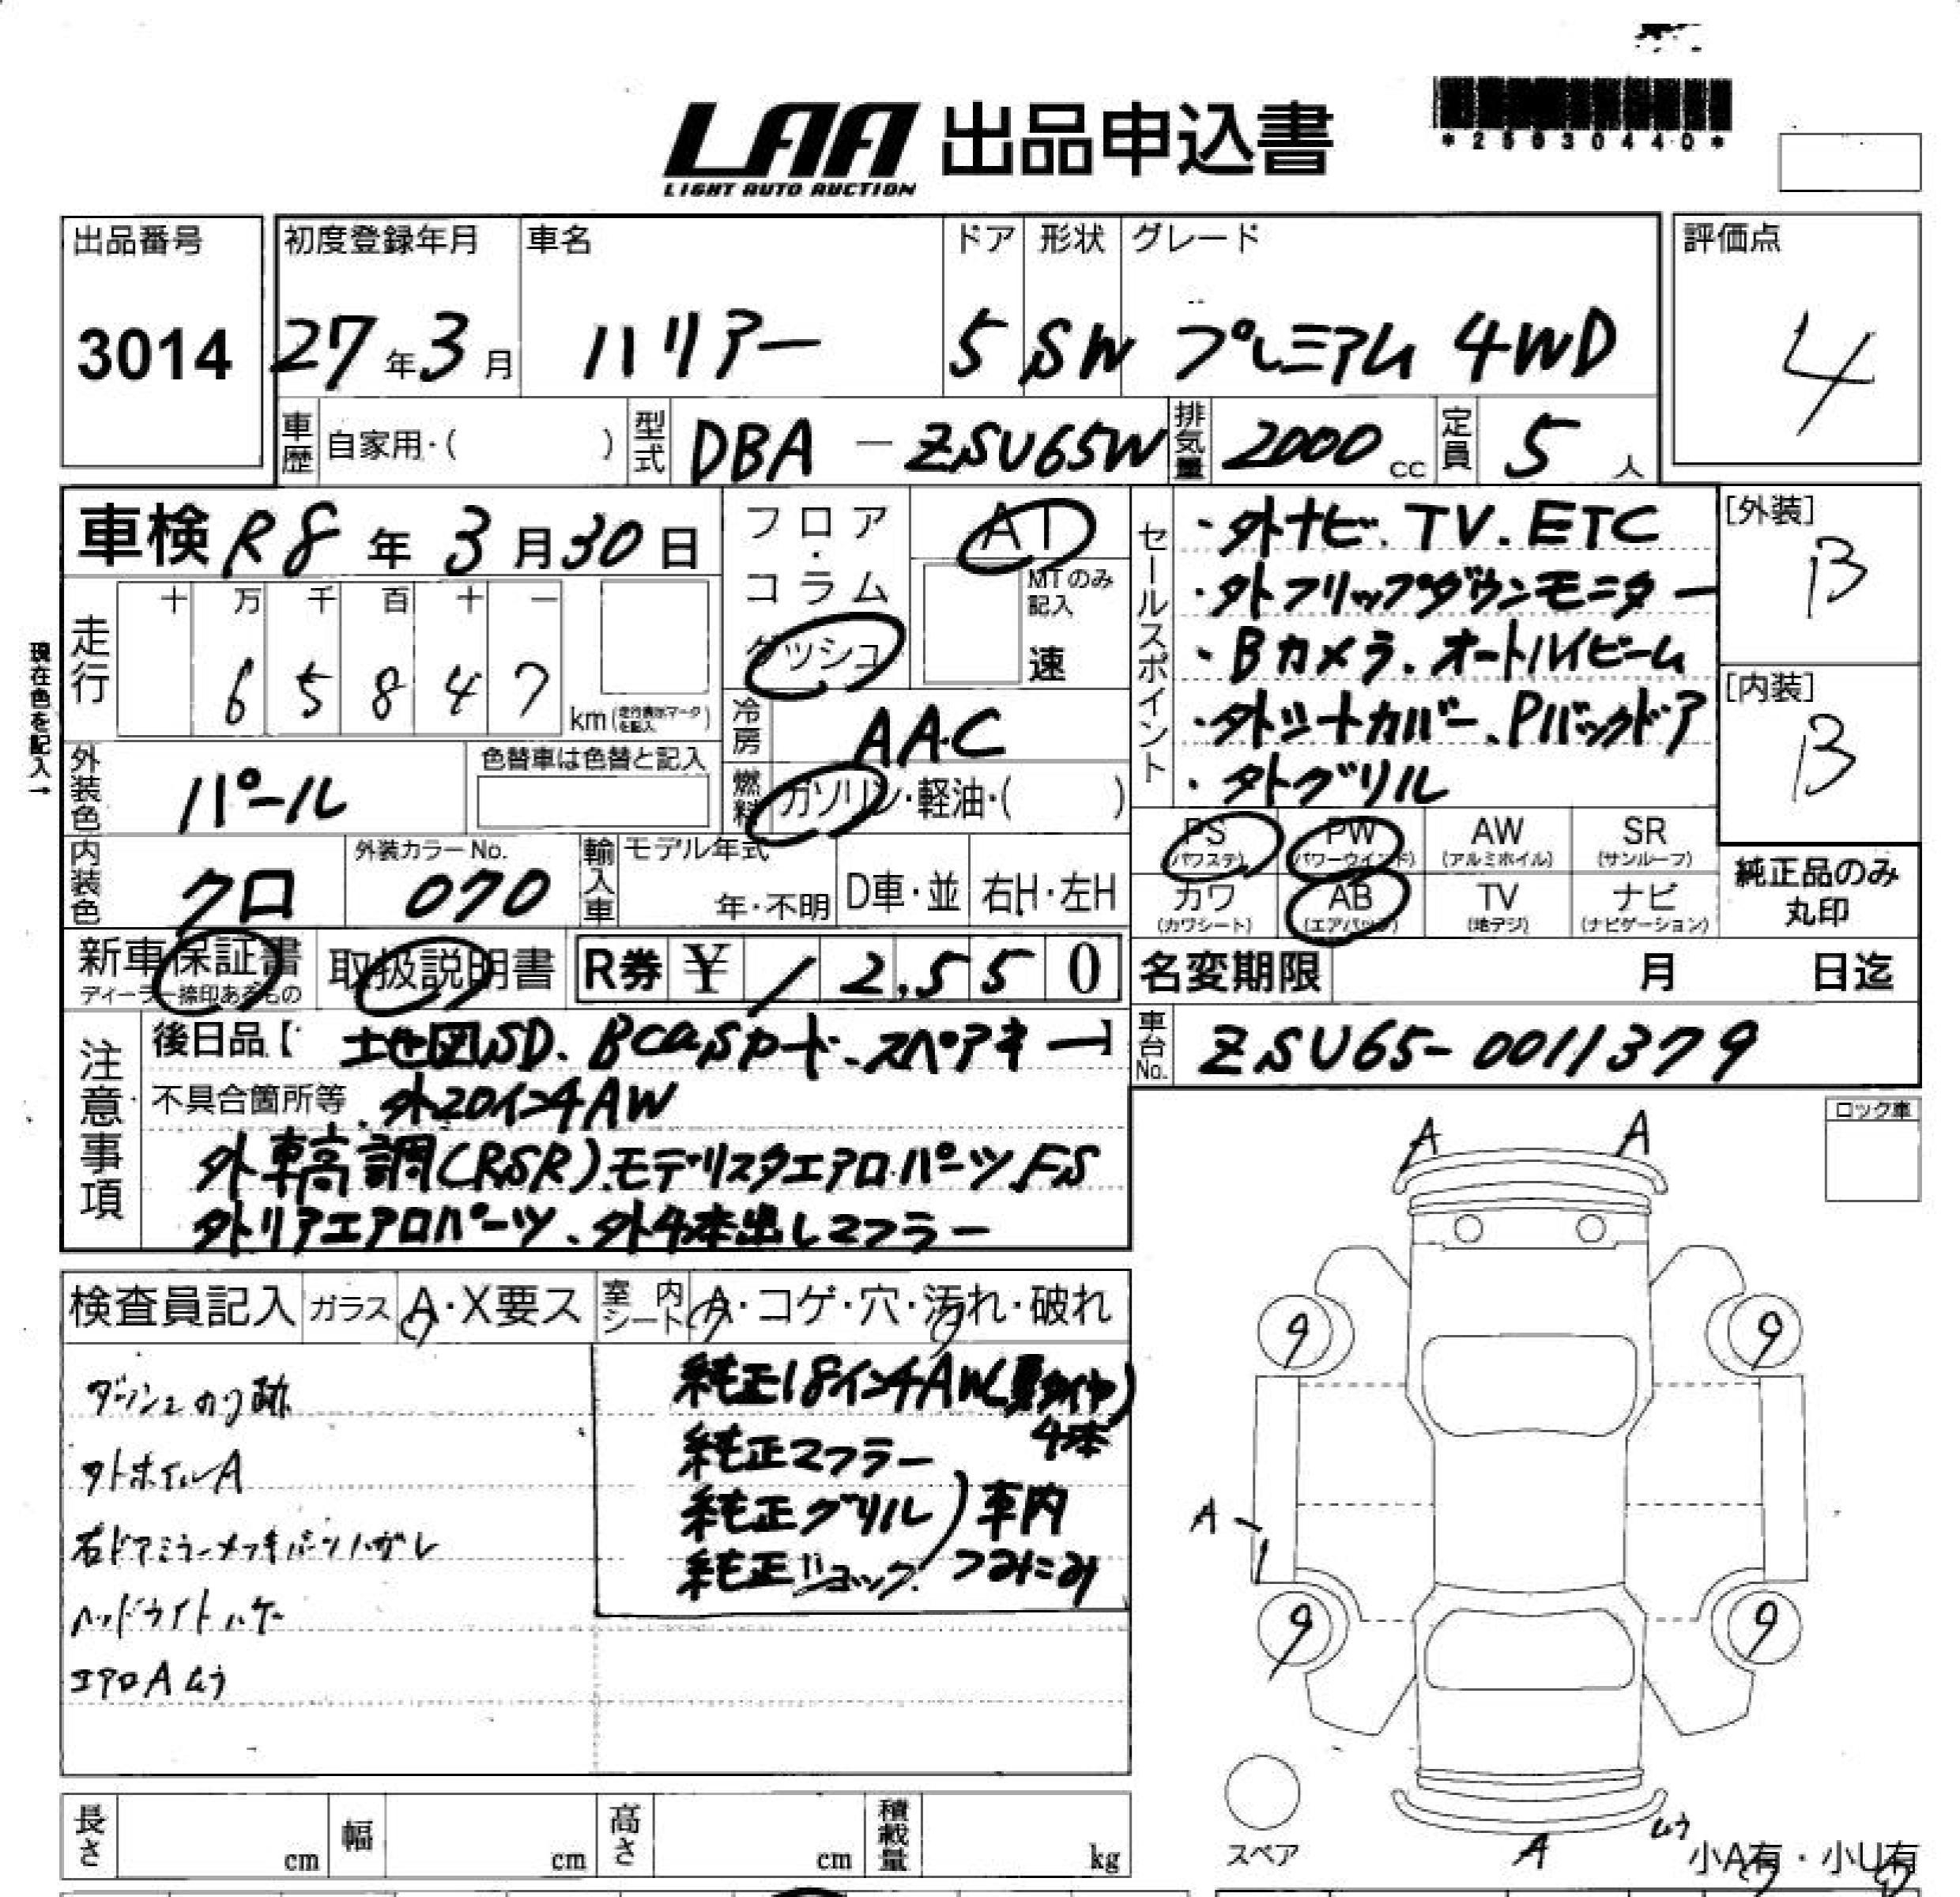 LAA 出品申込書
LIGHT AUTO AUCTION
*25030440*
出品番号
3014
初度登録年月 車名 ドア 形状 グレード
27年3月 ハリアー 5 SW プレミアム 4WD
評価点
4
車歴 自家用・( ) 型式 DBA - ZSU65W 排気量 2000 cc 定員 5 人
車検 R8年 3月30日
フロア・コラム ダッシュ
AT
MTのみ記入
速
セールスポイント
・外ナビ、TV、ETC
・外フリップダウンモニター
・Bカメラ、オートハイビーム
・外シートカバー、Pバックドア
・外グリル
[外装]
B
[内装]
B
現在色を記入→
走行
十 万 千 百 十 一
6 5 8 4 7
km (走行表示マークを記入)
冷房 AAC
外装色 パール
色替車は色替と記入
燃料 ガソリン・軽油・( )
内装色 クロ
外装カラーNo.
070
輸入車 モデル年式
年・不明 D車・並 右H・左H
PS (パワステ) PW (パワーウインド) AW (アルミホイル) SR (サンルーフ)
カワ (カワシート) AB (エアバッグ) TV (地デジ) ナビ (ナビゲーション)
純正品のみ
丸印
新車保証書 取扱説明書 R券 ¥ 12,550
ディーラー捺印あるもの
名変期限 月 日迄
注意事項
後日品【 地図SD、BCaSカード、スペアキー】
車台No. ZSU65-0011379
不具合箇所等、外20インチAW
外車高調(RSR)、モデリスタエアロパーツFS
外リアエアロパーツ、外4本出しマフラー
ロック車
A A
検査員記入 ガラス A・X要ス 室内シート A・コゲ・穴・汚れ・破れ
ダッシュのり跡
外ホイルA
右ドアミラーメッキパーツハガレ
ヘッドライトハゲ
エアロAムラ
純正18インチAW(夏タイヤ)
4本
純正マフラー
純正グリル
純正ショック
車内
つみこみ
9 9
A
9 9
スペア
A
ムラ
小A有・小U有
長さ cm 幅 cm 高さ cm 積載量 kg